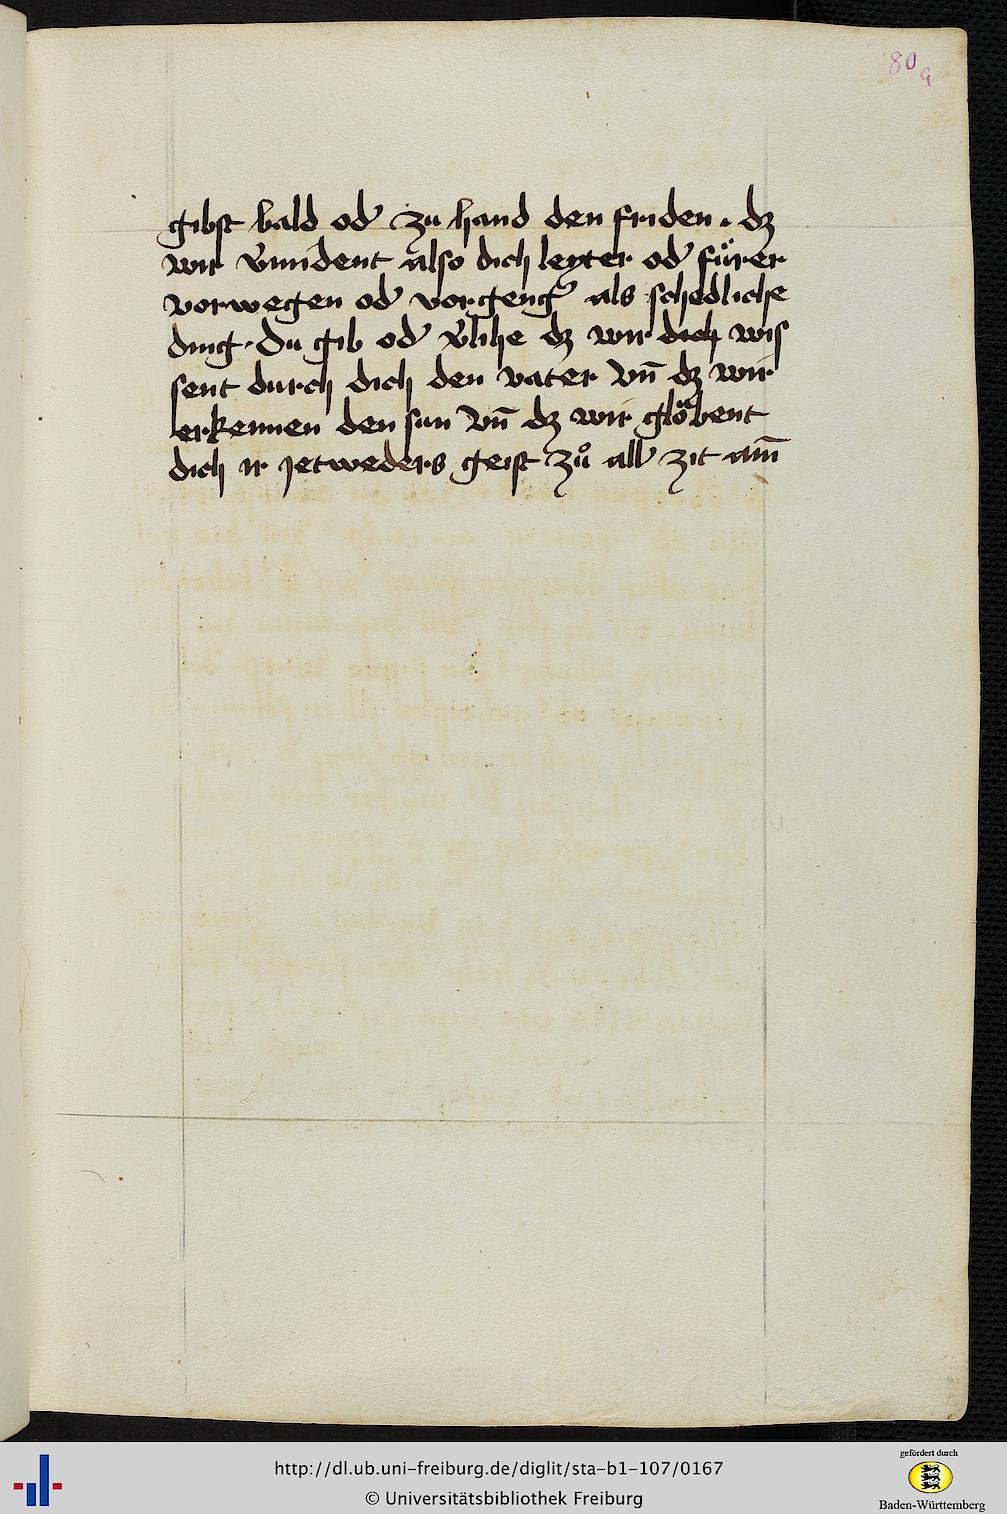 80a
gibst bald od' zu hand den friden. dz
wir v̄mident also dich leyter od' fu̎rer
vorwegen od' vorgeng' als schedliche
ding. Du gib od' v̄lihe dz wir dich wis
sent durch dich den vater vn̄ dz wir
erkennen den sun vn̄ dz wir glo̎bent
dich ir Jetweders geist zů all zit am̄
http://dl.ub.uni-freiburg.de/diglit/sta-b1-107/0167
© Universitätsbibliothek Freiburg
gefördert durch
Baden-Württemberg